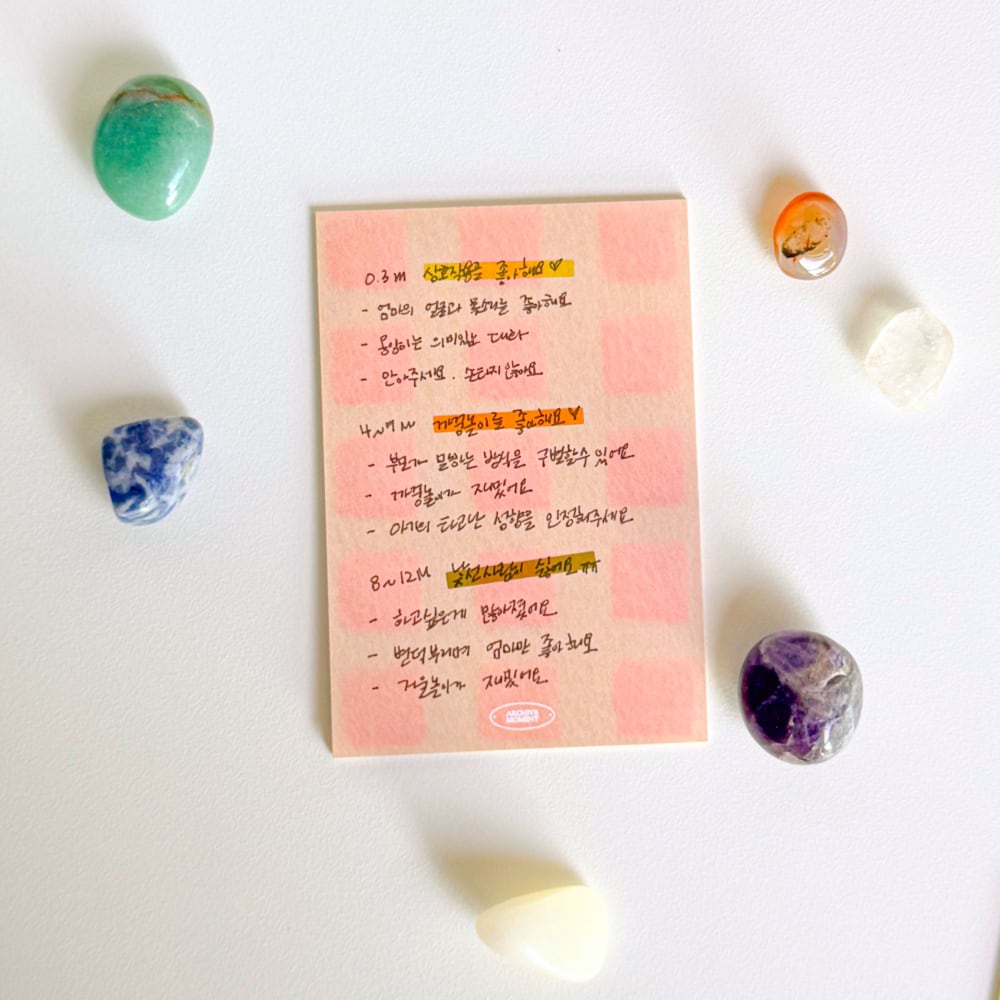 0.3M 상호작용을 좋아해요♡
- 엄마의 얼굴과 목소리를 좋아해요
- 옹알이는 의미있는 대화
- 안아주세요. 손타지 않아요
4~7M 까꿍놀이를 좋아해요♡
- 부모가 말하는 방식을 구별할수 있어요
- 까꿍놀이가 재밌어요
- 아기의 타고난 성향을 인정해주세요
8~12M 낯선사람이 싫어요ㅠㅠ
- 하고싶은게 많아졌어요
- 변덕부리며 엄마만 좋아해요
- 거울놀이가 재밌어요
ARCHIVE
MOMENT